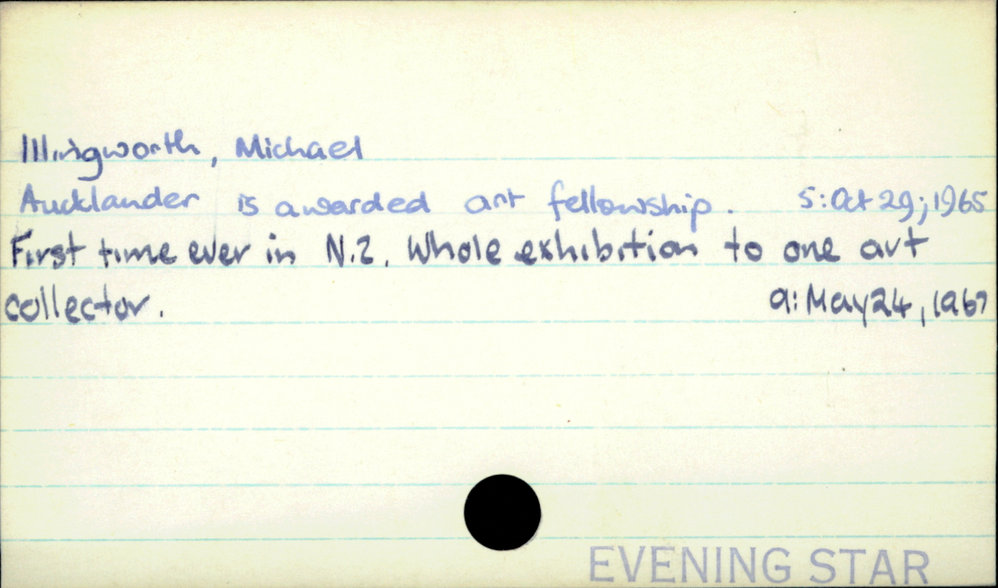 Illingworth, Michael
Aucklander is awarded art fellowship. 5: Oct 29; 1965
First time ever in N.Z. Whole exhibition to one art
collector. 9: May 24, 1967
EVENING STAR